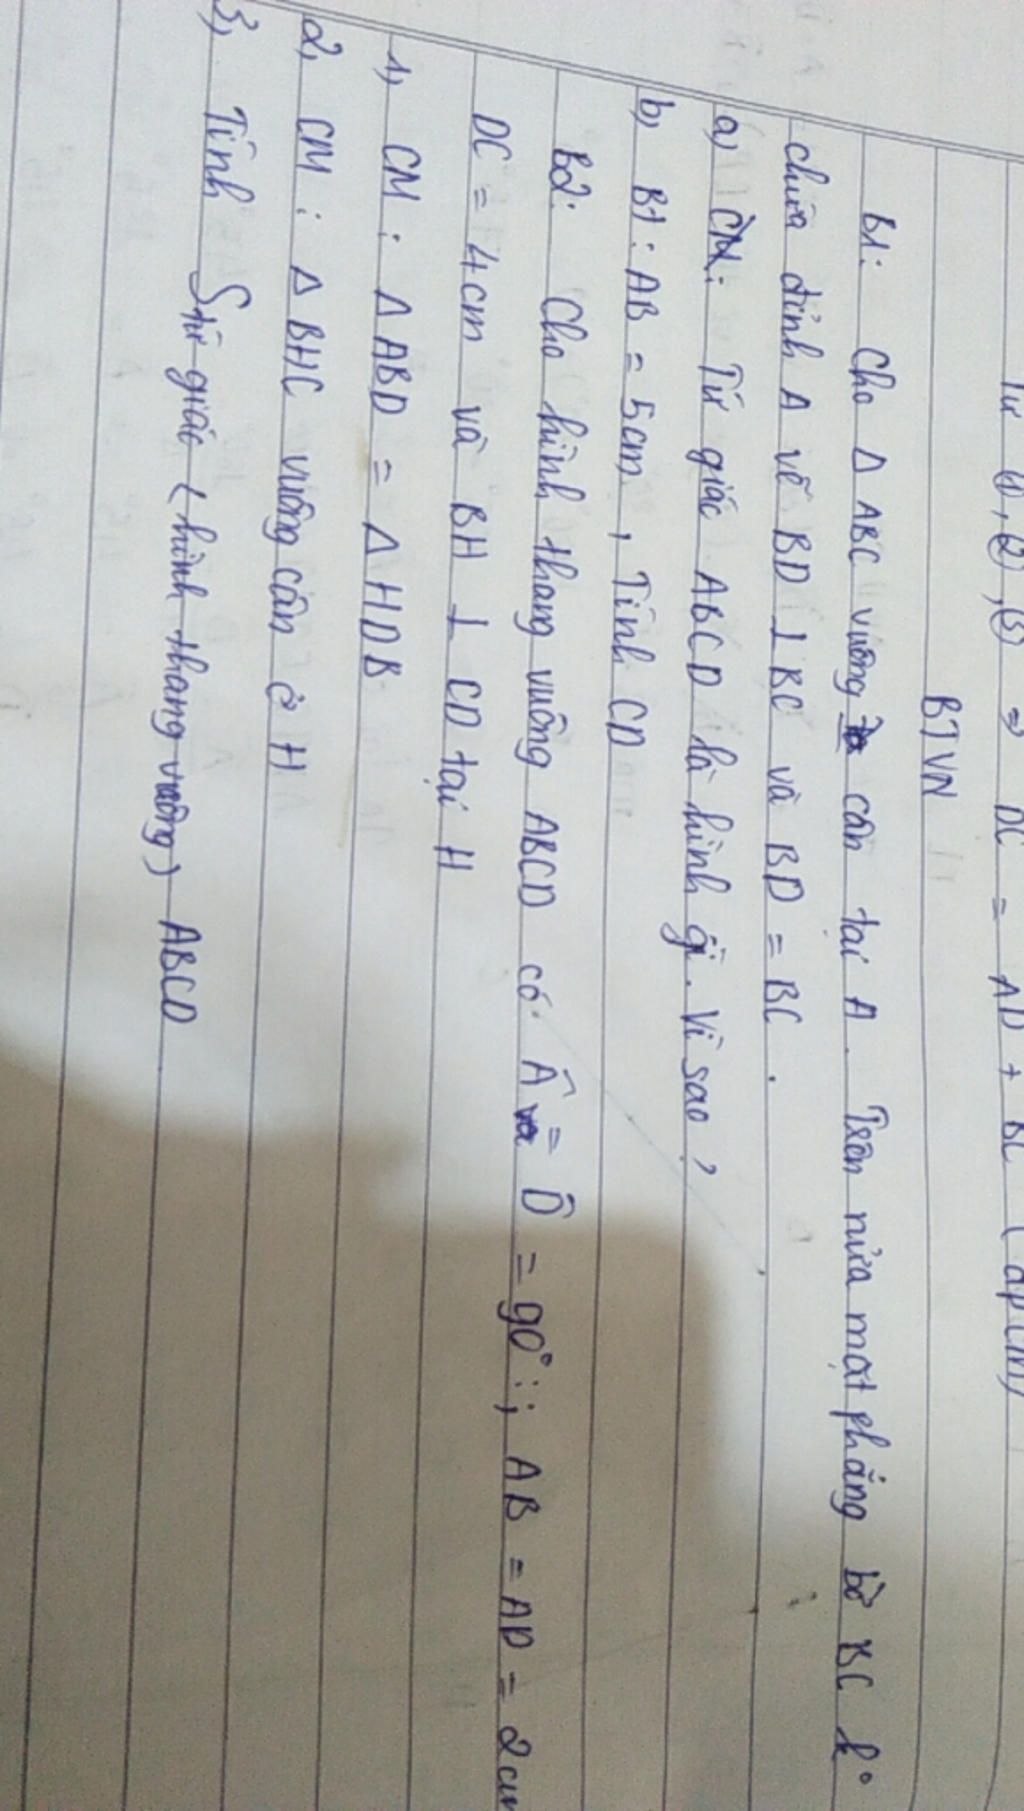 Từ (1), (2), (3) ⇒ DC = AD + BC (đpcm)
BTVN
B1: Cho Δ ABC vuông cân tại A. Trên nửa mặt phẳng bờ BC k°
chứa đỉnh A vẽ BD ⊥ BC và BD = BC.
a, CM: Tứ giác ABCD là hình gì. Vì sao?
b, B1: AB = 5cm, Tính CD
B2: Cho hình thang vuông ABCD có Â = D̂ = 90°:; AB = AD = 2cm
DC = 4cm và BH ⊥ CD tại H
1, CM: Δ ABD = Δ HDB
2, CM: Δ BHC vuông cân ở H
3, Tính S tứ giác (hình thang vuông) ABCD